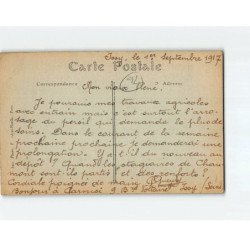 Issy, le 1er Septembre 1917
Carte Postale
Correspondance Adresse
Mon vieux René.
Je poursuis mes travaux agricoles
avec entrain mais c'est surtout l'arro-
sage du persil qui demande le plus de
soins. Dans le courant de la semaine
prochaine je demanderai une
prolongation. Y a t'il du nouveau au
dépôt ? Quand les stagiaires de Chau
mont sont ils partis ? et les gosports ?
Cordiale poignée de main
Bonjour à 9 Bd Voltaire Issy